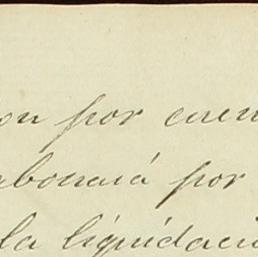 on por cuen
abonará por
la liquidaci